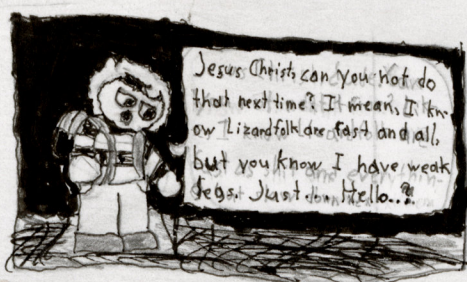 Jesus Christ, can you not do
that next time? I mean, I kn-
ow Lizardfolk are fast and all,
but you know I have weak
legs. Just... Hello..?!